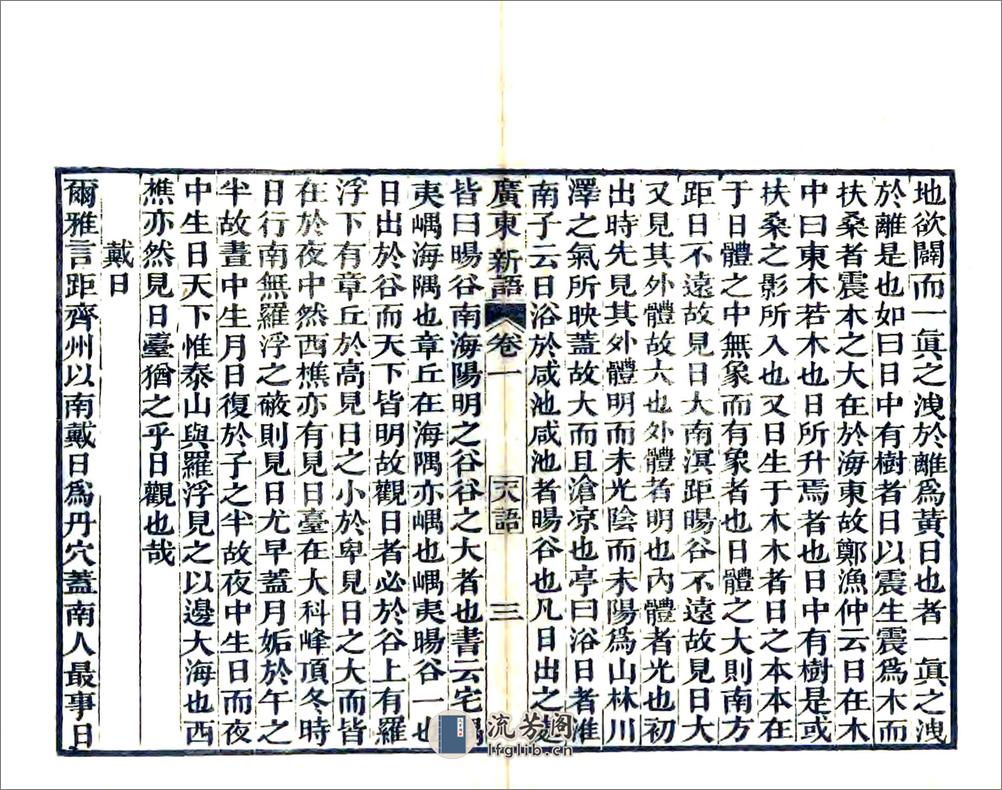 地欲闢而一眞之洩於離爲黃日也者一眞之洩
於離是也如曰日中有樹者日以震生震爲木而
扶桑者震木之大在於海東故鄭漁仲云日在木
中曰東木若木也日所升焉者也日中有樹是或
扶桑之影所入也又日生于木木者日之本本在
于日體之中無象而有象者也日體之大則南方
距日不遠故見日大南溟距暘谷不遠故見日大
又見其外體故大也外體者明也內體者光也初
出時先見其外體明而未光陰而未陽爲山林川
澤之氣所映蓋故大而且滄凉也亭曰浴日者淮
南子云日浴於咸池咸池者暘谷也凡日出之
廣東新語 卷一 天語 三
皆曰暘谷南海陽明之谷谷之大者也書云宅嵎
夷嵎海隅也章丘在海隅亦嵎也嵎夷暘谷一也
日出於谷而天下皆明故觀日者必於谷上有羅
浮下有章丘於高見日之小於卑見日之大而皆
在於夜中然西樵亦有見日臺在大科峰頂冬時
日行南無羅浮之蔽則見日尤早蓋月姤於午之
半故晝中生月日復於子之半故夜中生日而夜
中生日天下惟泰山與羅浮見之以邊大海也西
樵亦然見日臺猶之乎日觀也哉
戴日
爾雅言距齊州以南戴日爲丹穴蓋南人最事日
流芳阁
lfglib.cn